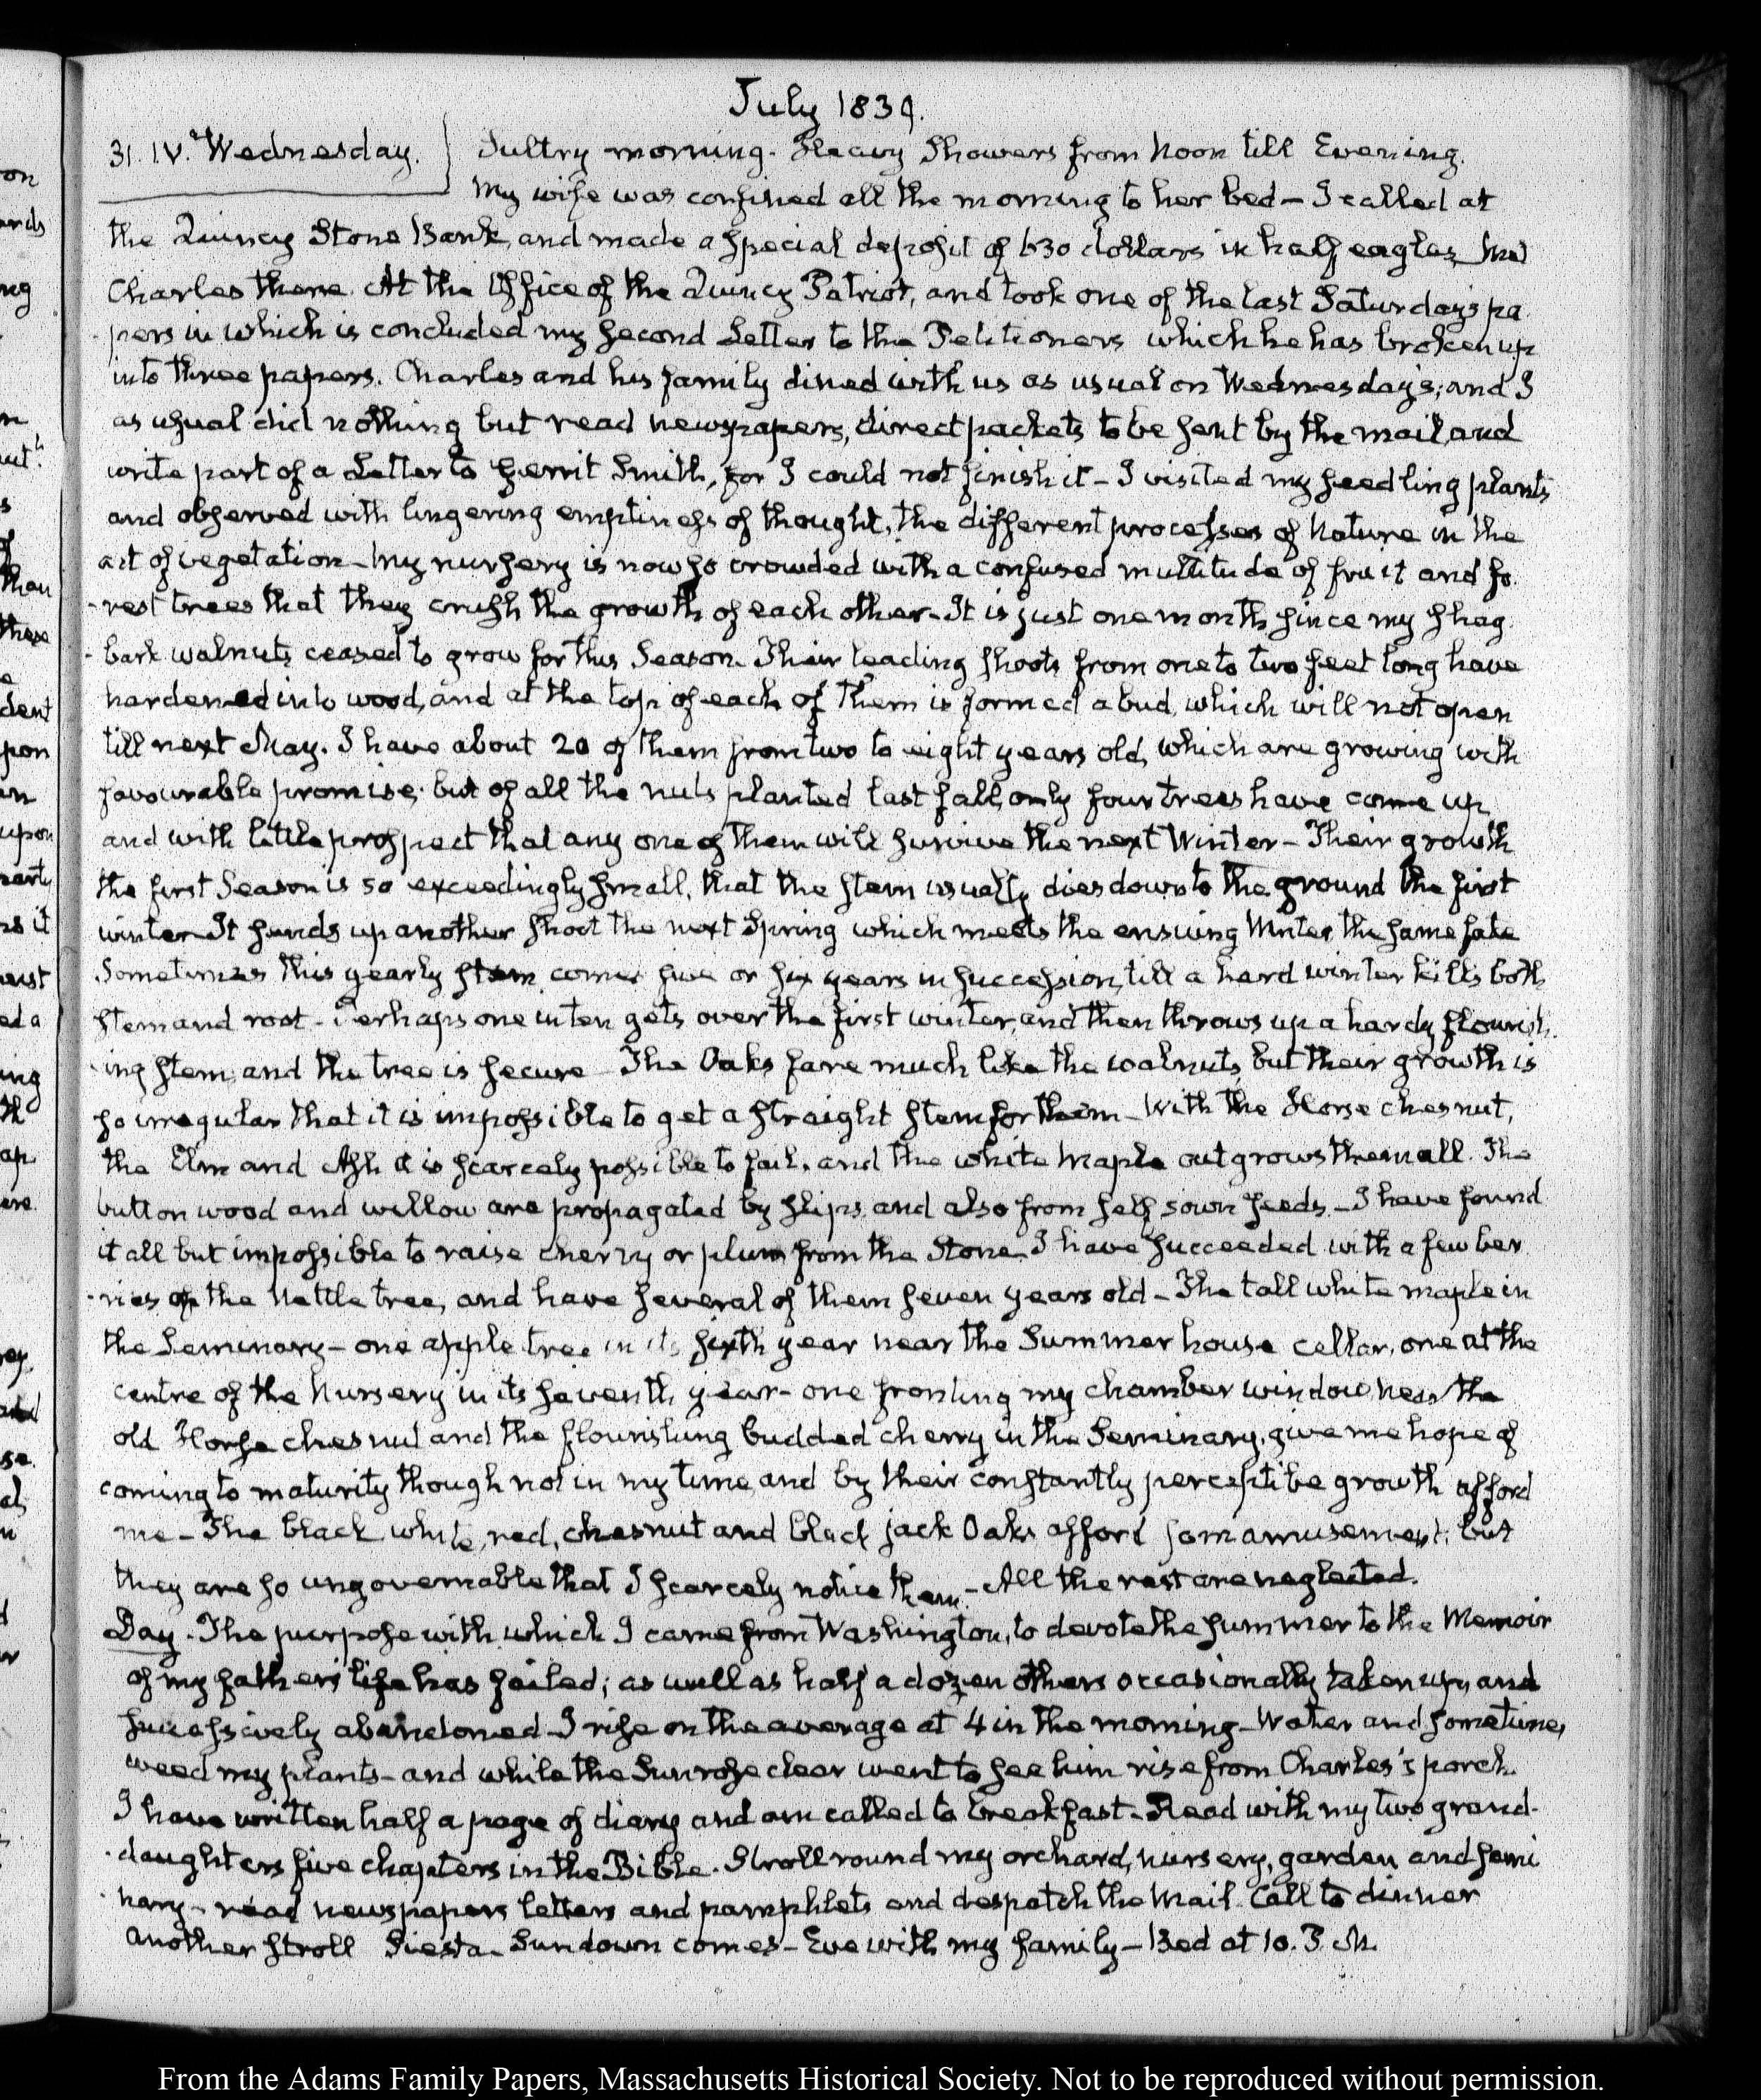 July 1839.
31. IV. Wednesday. Sultry morning. Heavy Showers from Noon till Evening.
My wife was confined all the morning to her bed – I called at
the Quincy Stone Bank, and made a special deposit of 630 dollars in half eagles,
Charles there. At the Office of the Quincy Patriot, and took one of the last Saturday's pa
-pers in which is concluded my second Letter to the Petitioners which he has broken up
into three papers. Charles and his family dined with us as usual on Wednesdays; and I
as usual did nothing but read newspapers, direct packets to be sent by the mail, and
write part of a Letter to Gerrit Smith, for I could not finish it – I visited my seedling plants
and observed with lingering emptiness of thought, the different processes of Nature in the
art of vegetation – My nursery is now so crowded with a confused multitude of fruit and fo
-rest trees that they crush the growth of each other – It is just one month since my shag
-bark walnuts ceased to grow for this Season. Their leading shoots from one to two feet long have
hardened into wood, and at the top of each of them is formed a bud, which will not open
till next May. I have about 20 of them from two to eight years old, which are growing with
favourable promise; but of all the nuts planted last fall, only four trees have come up,
and with little prospect that any one of them will survive the next Winter – Their growth
the first Season is so exceedingly small, that the stem usually dies down to the ground the first
winter. It sends up another shoot the next Spring which meets the ensuing Winter the same fate
Sometimes this yearly stem comes five or six years in succession, till a hard winter kills both
stem and root – Perhaps one in ten gets over the first winter, and then throws up a hardy flourish
-ing stem, and the tree is secure – The Oaks fare much like the walnuts, but their growth is
so irregular that it is impossible to get a straight stem for them – With the Horse chesnut,
the Elm and Ash it is scarcely possible to fail, and the white Maple outgrows them all. The
button wood and willow are propagated by slips, and also from self sown seeds – I have found
it all but impossible to raise cherry or plum from the Stone. I have succeeded with a few ber
-ries of the Nettle tree, and have several of them seven years old – The tall white maple in
the Seminary – one apple tree in its sixth year near the Summer house cellar, one at the
centre of the Nursery in its seventh year – one fronting my chamber window near the
old Horse chesnut and the flourishing budded cherry in the Seminary, give me hope of
coming to maturity though not in my time, and by their constantly perceptibe growth afford
me – The black, white, red, chesnut and black jack Oaks afford som amusement; but
they are so ungovernable that I scarcely notice them. – All the rest are neglected.
Day. The purpose with which I came from Washington, to devote the summer to the Memoir
of my father's life has failed; as well as half a dozen others occasionally taken up, and
successively abandoned – I rise on the average at 4 in the morning – Water and sometimes
weed my plants – and while the Sun rose clear went to see him rise from Charles's porch.
I have written half a page of diary and am called to breakfast – Read with my two grand-
-daughters five chapters in the Bible. Stroll round my orchard, nursery, garden and semi
-nary – read newspapers letters and pamphlets and despatch the Mail. Call to dinner
another stroll Siesta – Sundown comes – Eve with my family – Bed at 10. P.M.
From the Adams Family Papers, Massachusetts Historical Society. Not to be reproduced without permission.